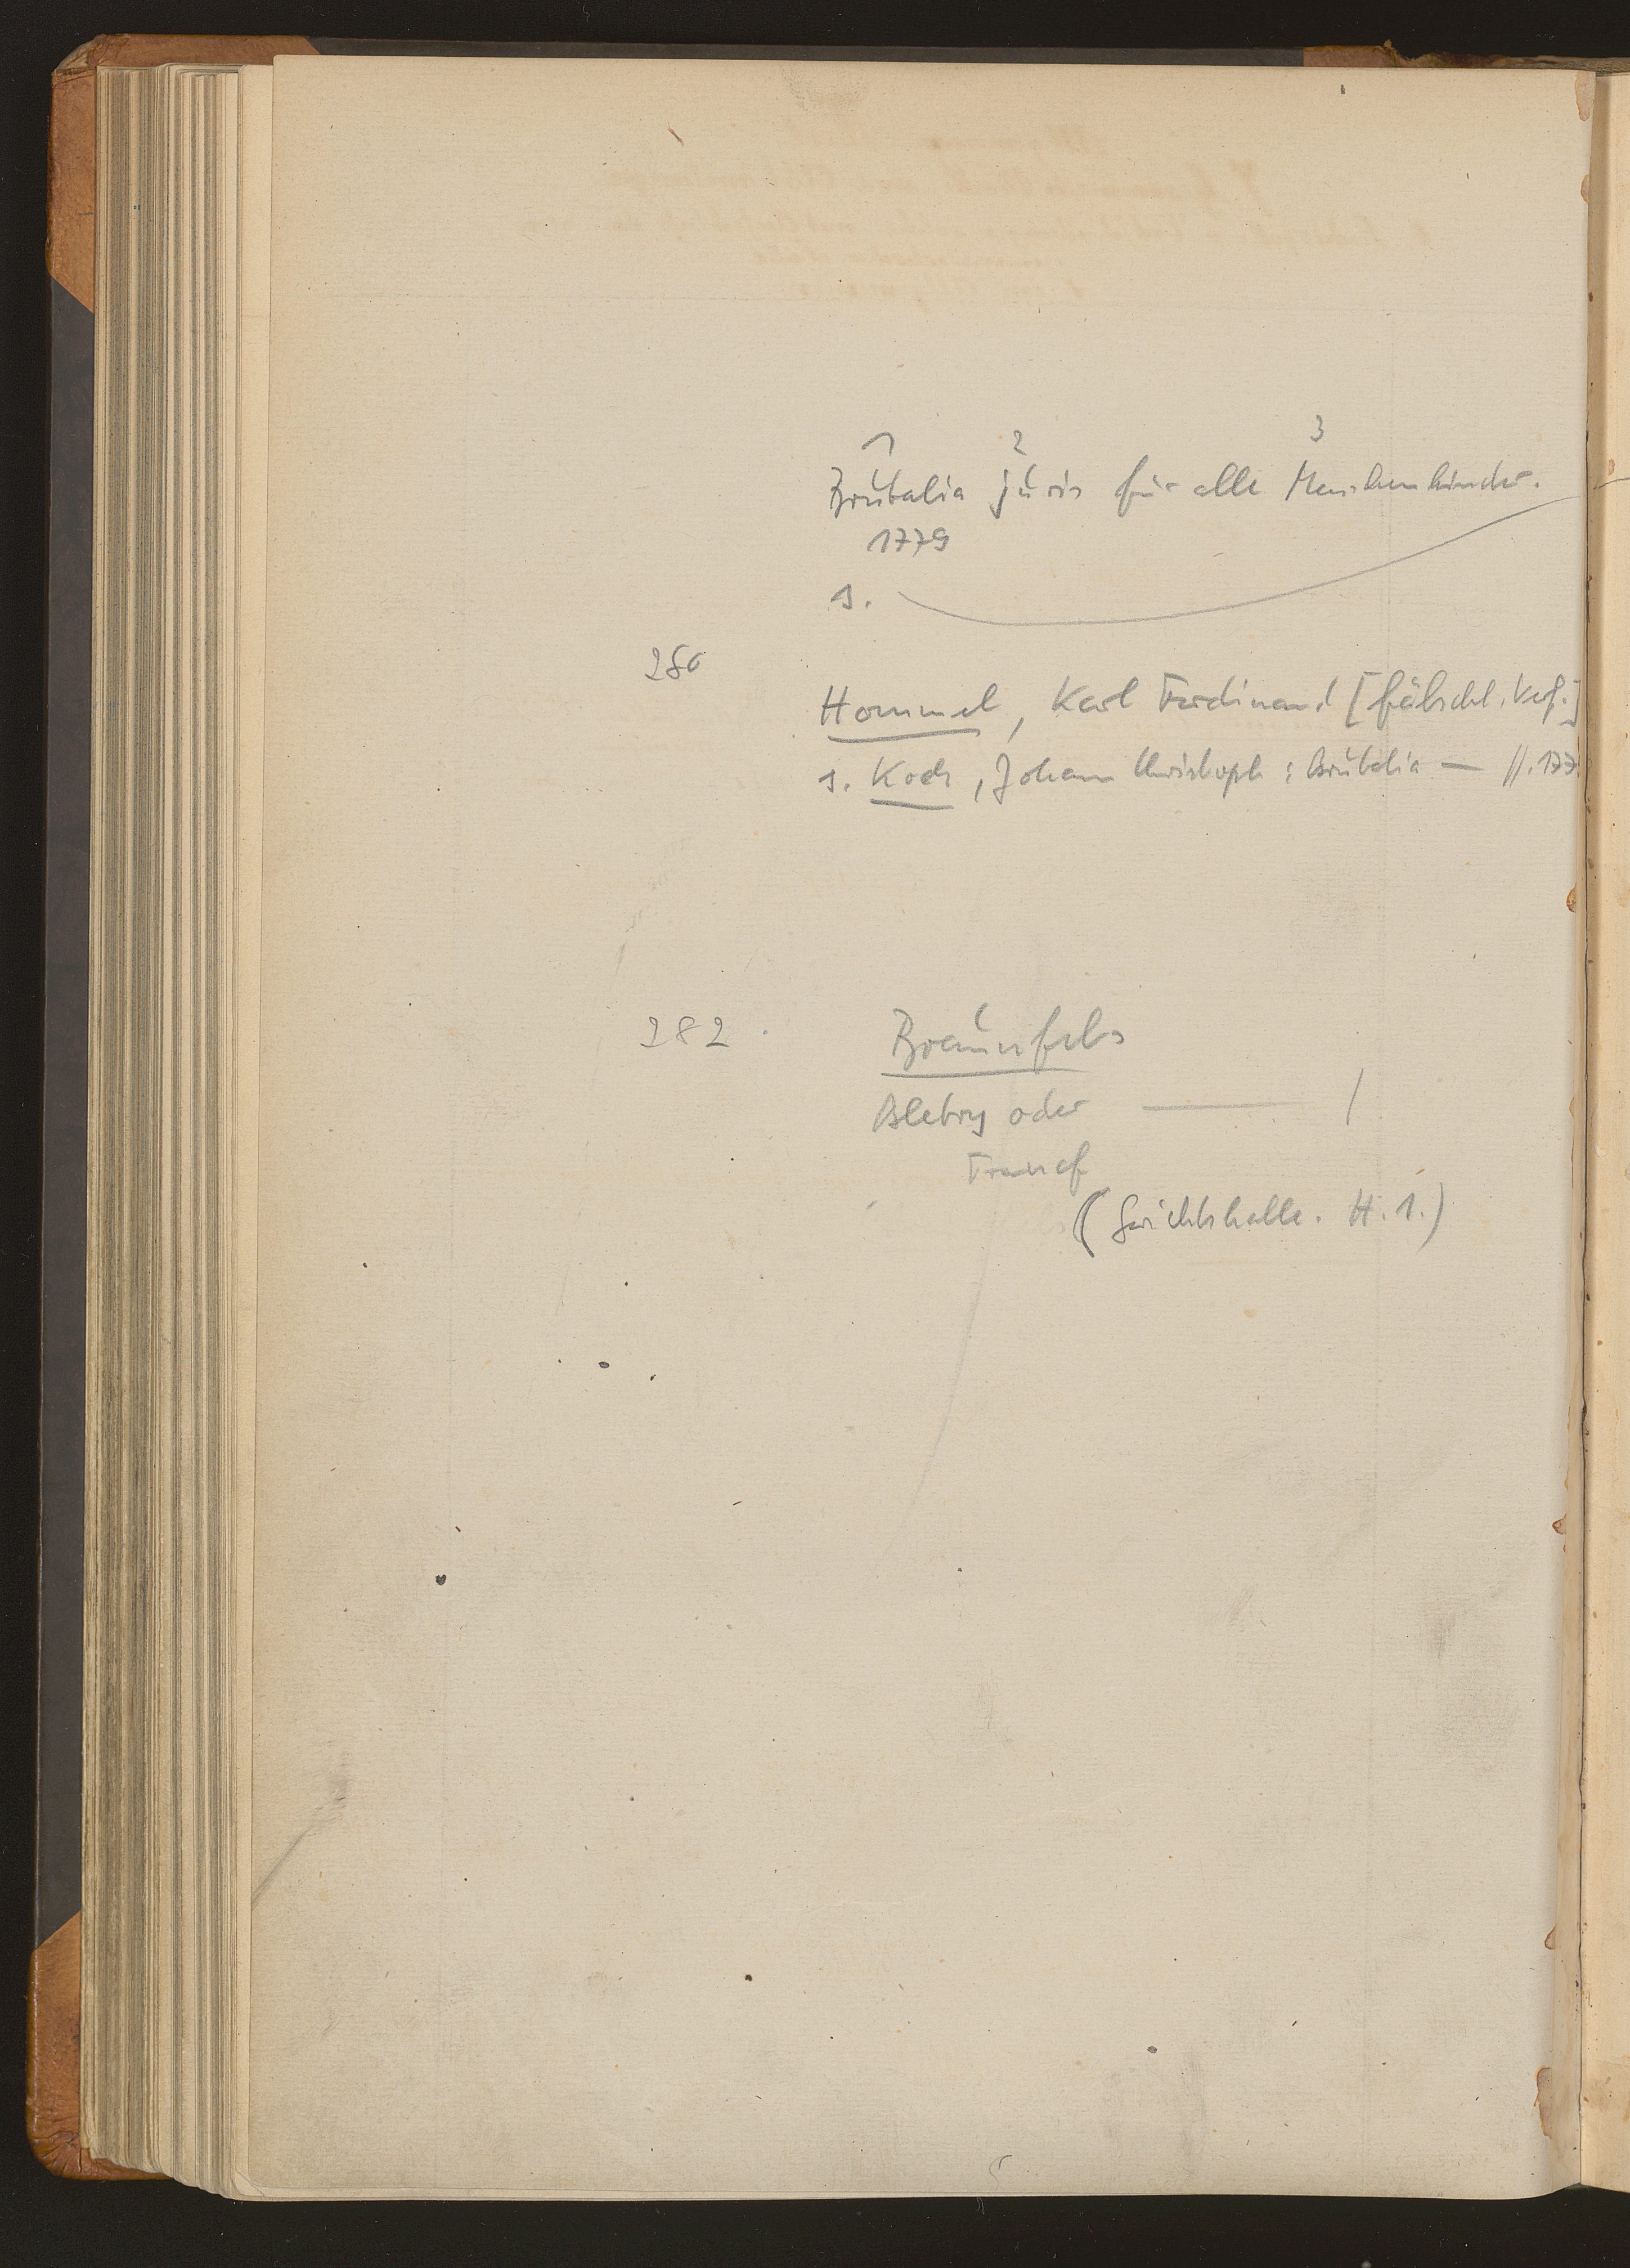 1 2 3
Brutalia juris für alle Menschenkinder.
1779
s.
280
Hommel, Karl Ferdinand [fälschl. Verf.]
s. Koch, Johann Christoph: Brutalia — //. 177
282.
Braunfels
oder /
(Gerichtshalle. H. 1.)